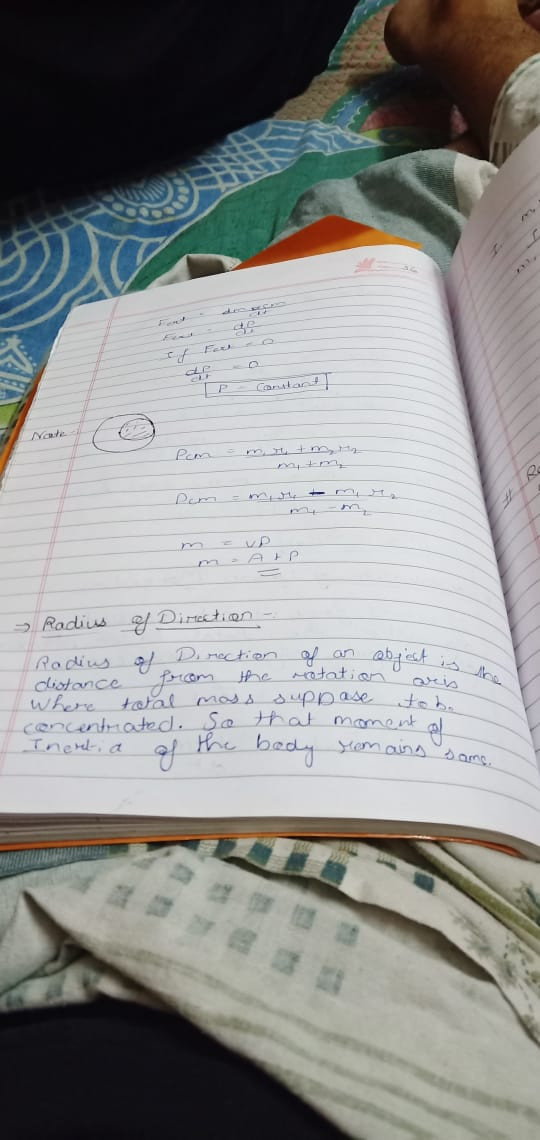 36
Fext = dmvcm/dt
Fext = dP/dt
If Fext = 0
dP/dt = 0
P = Constant
Note:
Pcm = m₁r₁ + m₂r₂ / m₁ + m₂
Pcm = m₁r₁ - m₁r₂ / m₁ - m₂
m = VP
m = A t P
⇒ Radius of Direction -
Radius of Direction of an object is the
distance from the rotation axis
where total mass suppase to be
concentrated. So that moment of
Inertia of the body remains same.